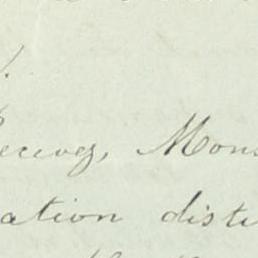 Recevez, Mons
ation disti